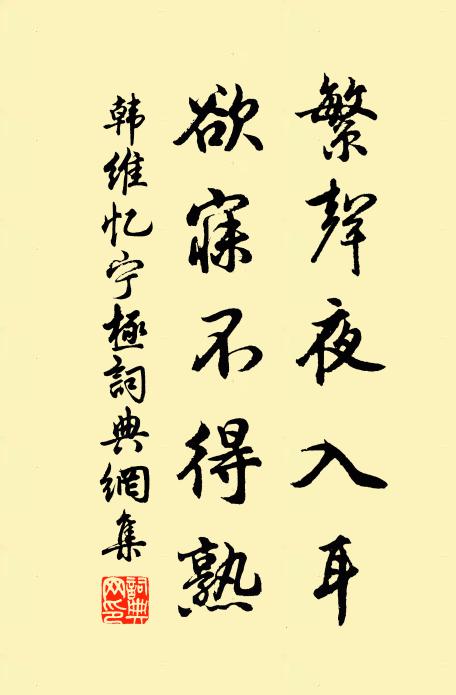 繁聲夜入耳
欲寐不得熟
韩維忆宁極詞典網集
詞典网印